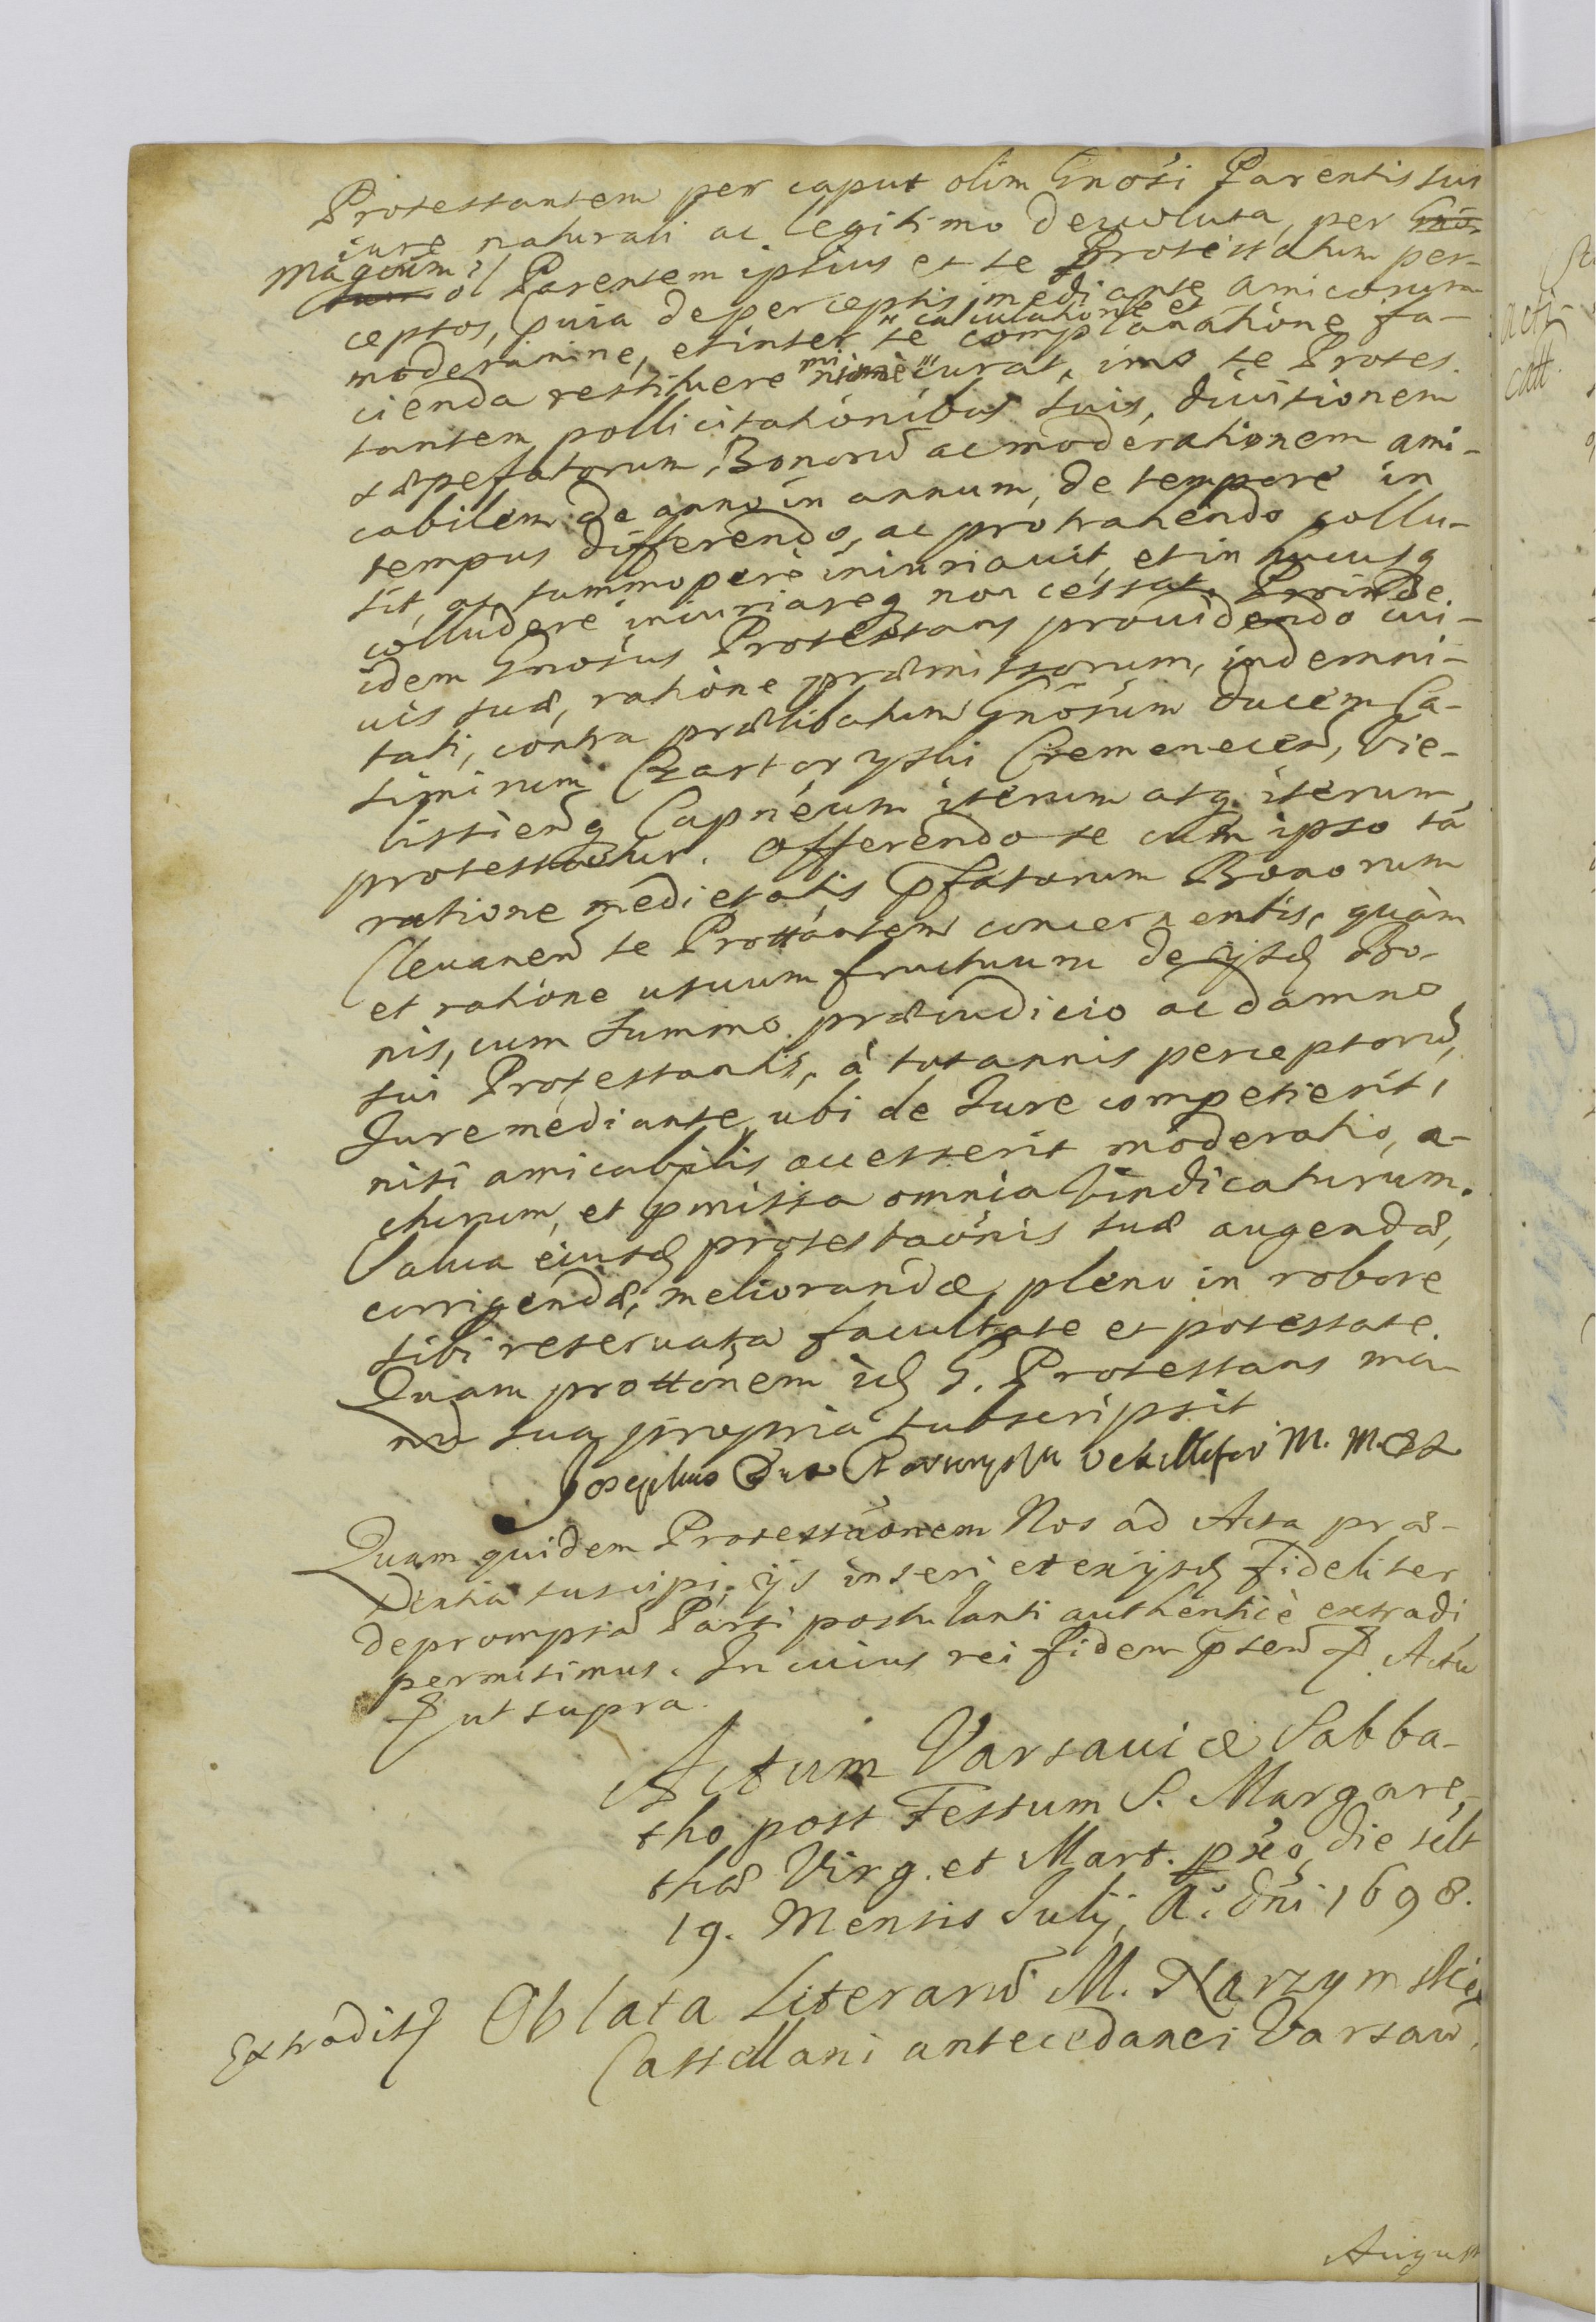 Protestantem per caput olim Gnosi Parentis sui
iure naturali ac legitimo deuoluta, per
Magcum ol Parentem ipsius et se Protestatum per-
ceptos, quia de perceptis mediante amicorum
moderamine, et inter se calculatione et complanatione fa-
cienda restituere minime curat, imo se Protes-
tantem pollicitationibus suis, diuisionem
sæpefatorum Bonorũ ac moderationem ami-
cabilem de anno in annum, de tempore in
tempus differendo, ac protrahendo collu-
sit, ac summopere iniuriauit, et in hucusq
colludere iniuriareq non cessat. Proinde
idem Gnosus Protestans prouidendo cui-
uis suæ, ratione præmissorum, indemni-
tati, contra prælibatum Gnosum Ducem Ca-
simirum Czartoryski Cremenecen, Vie-
listienq Capneum iterum atq iterum
protestatur. Offerendo se cum ipso tá
ratione medietatis pfatorum Bonorum
Cleuanen se Prottantem concernentis, quàm
et ratione usuum fructuum de ijsd Bo-
nis, cum summo præiudicio ac damno
sui Protestantis, à tot annis perceptorũ,
Jure mediante, ubi de Jure competierit,
nisi amicabilis accesserit moderatio, a-
cturum, et pmissa omnia vindicaturum.
Salua eiusd protestaonis suæ augendæ,
corrigendæ, meliorandæ, pleno in robore
sibi reseruata facultate et potestate.
Quam prottonem id G. Protestans ma-
nu sua propria subscripsit
Josephus Dux Czartoryski Vexillifer M. M.
Quam quidem Protestaonem Nos ad Acta præ-
sentia suscipi, ijs inseri, et ex ijsd fideliter
depromptã Parti postulanti authenticè extradi
permisimus. In cuius rei fidem psen Actũ
ut supra.
Actum Varsauiæ Sabba-
tho post Festum S. Margare-
thæ Virg. et Mart. pxo, die scilt
19. Mensis Julij, A. Dni 1698.
Extradit Oblata Literarũ M. Narzymski
Castellani antecedanei Varsaw
August